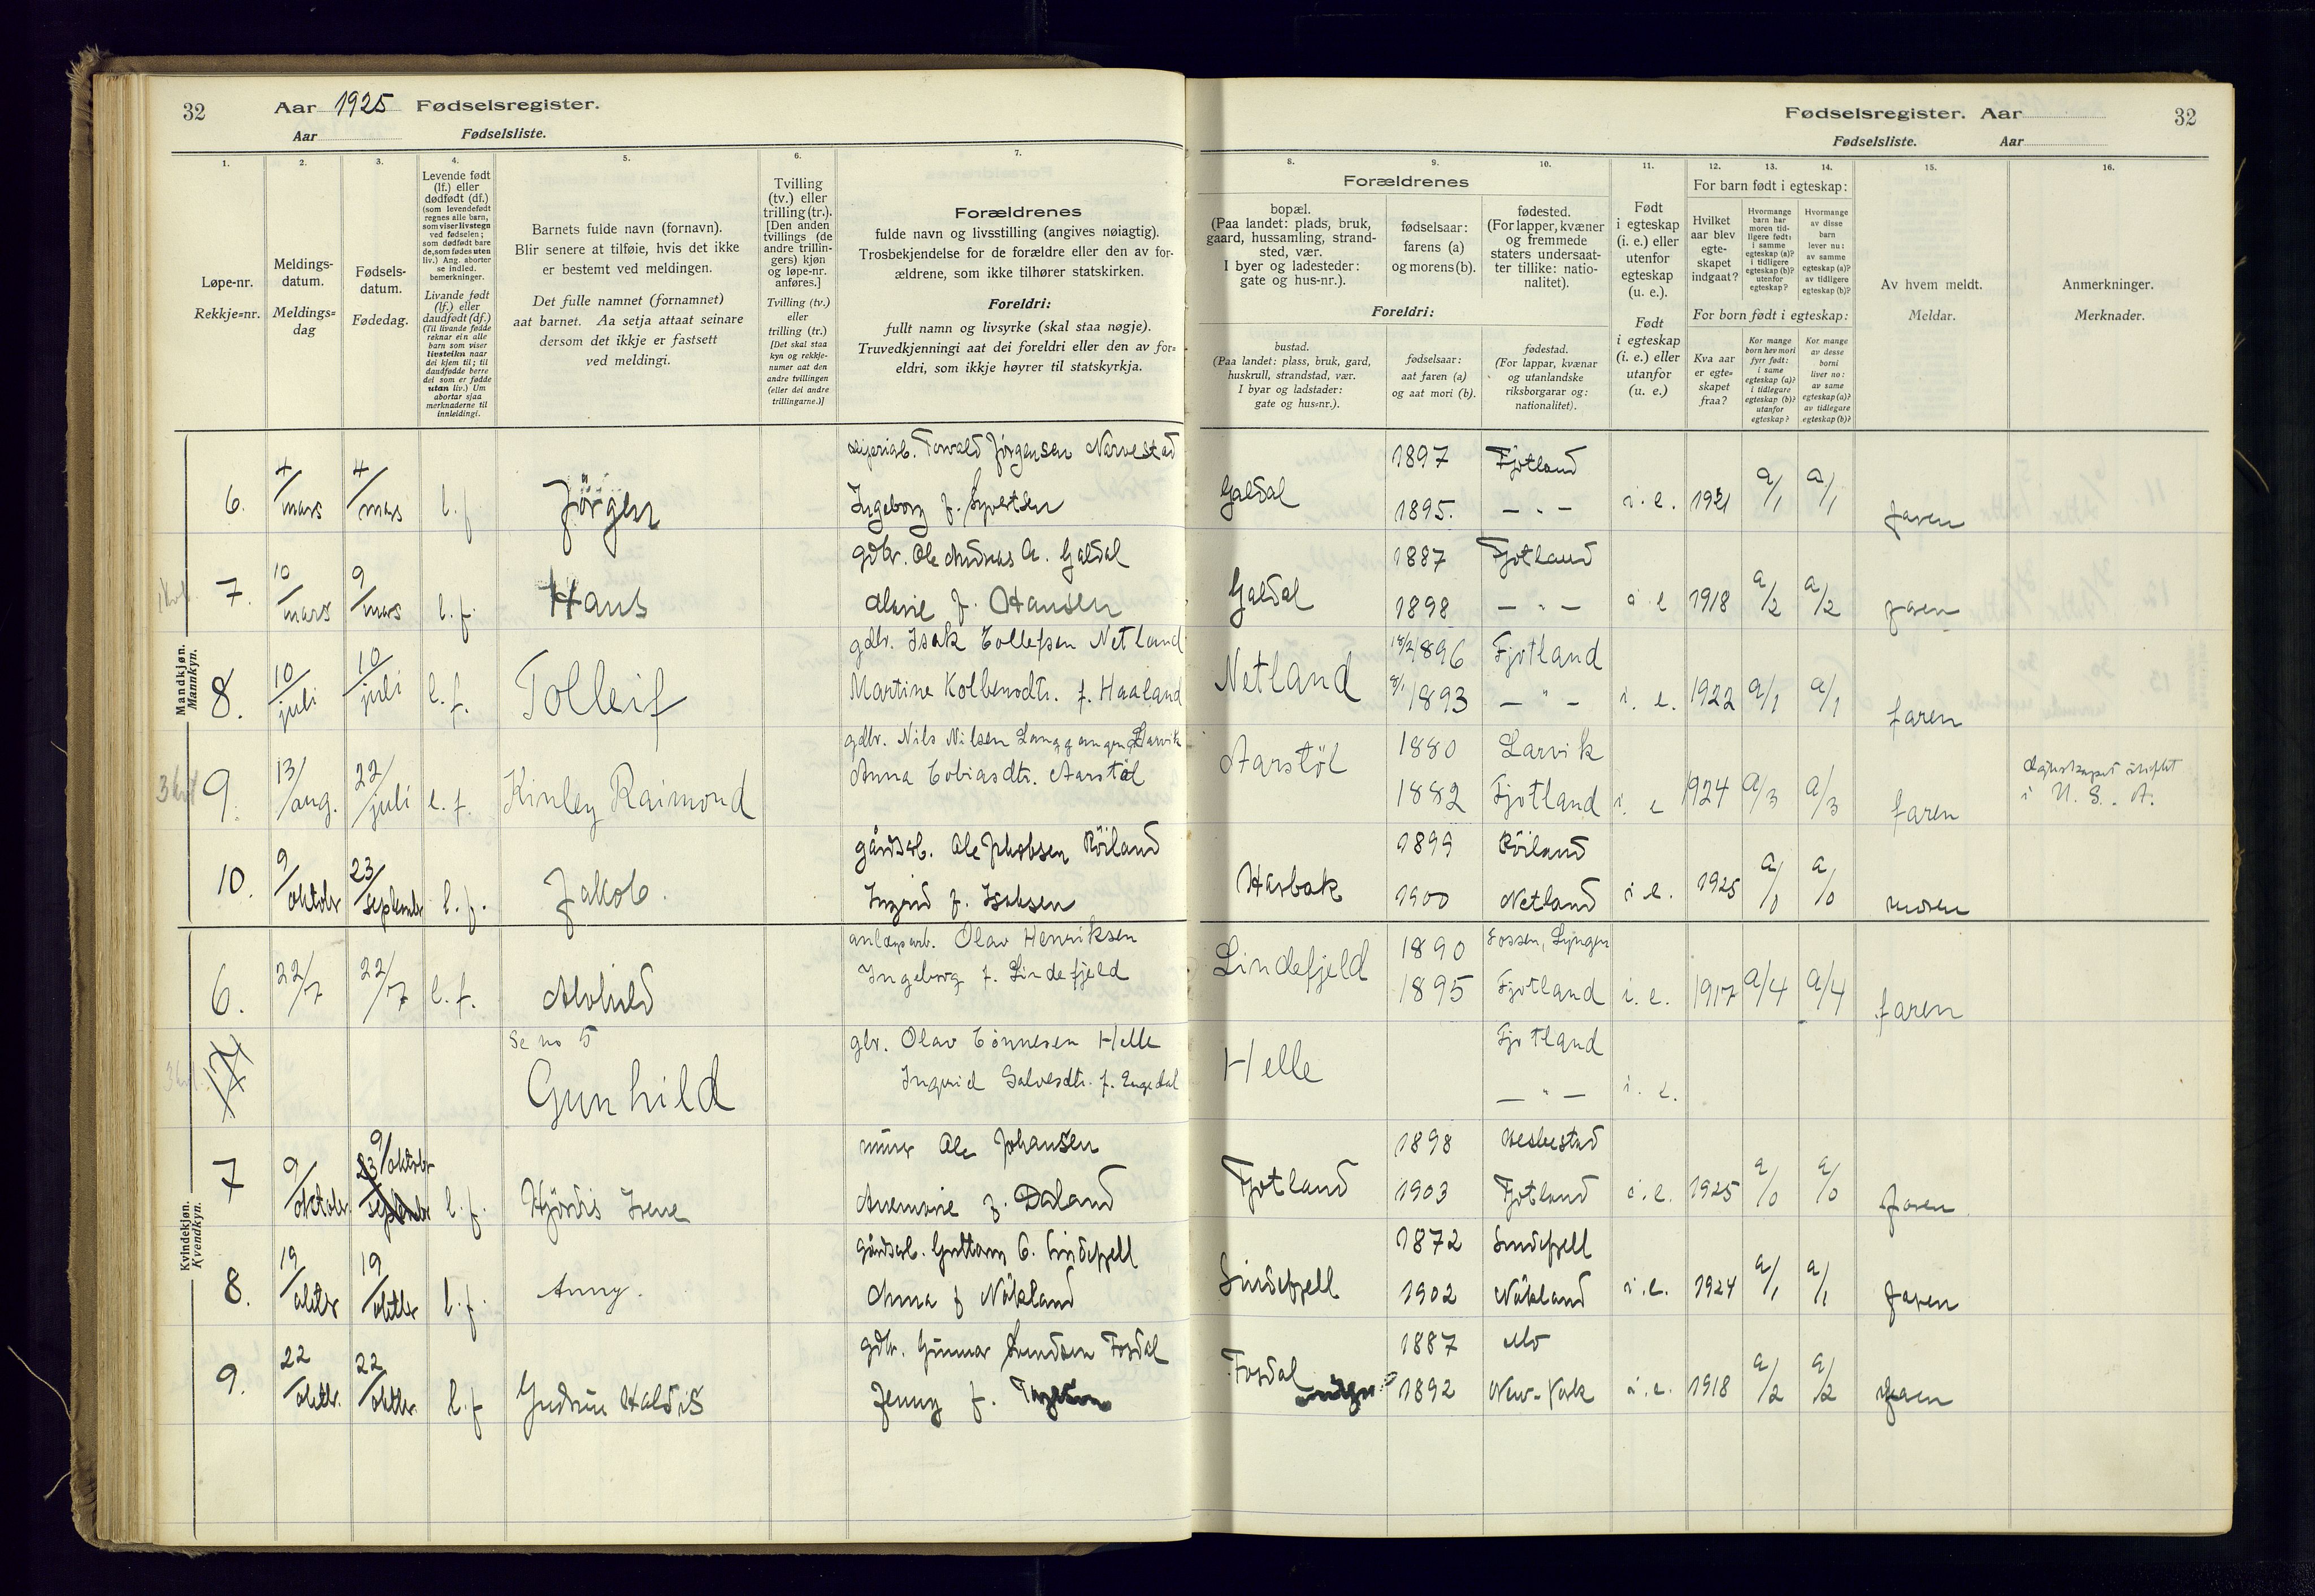 32 Aar 1925 Fødselsregister.
Aar Fødselsliste.
Fødselsregister. Aar 32
Fødselsliste. Aar
1. 2. 3. 4. 5. 6. 7. 8. 9. 10. 11. 12. 13. 14. 15. 16.
Løpe-nr.
Rekkje=nr.
Meldings-
datum.
Meldings=
dag
Fødsels-
datum.
Fødedag.
Levende født
(lf.) eller
dødfødt (df.)
(som levendefødt
regnes alle barn,
som viser livstegn
ved fødselen;
som dødfødt bare
de, som fødes uten
liv.) Ang. aborter
se indled.
bemerkninger.
Livande født
(lf.) eller
daudfødt (df.)
(Til livande fødde
reknar ein alle
barn som viser
livsteikn naar
dei kjem til; til
daudfødde berre
dei som er fødde
utan liv.) Um
abortar sjaa
merknaderne til
innleidingi.
Barnets fulde navn (fornavn).
Blir senere at tilføie, hvis det ikke
er bestemt ved meldingen.
Det fulle namnet (fornamnet)
aat barnet. Aa setja attaat seinare
dersom det ikkje er fastsett
ved meldingi.
Tvilling
(tv.) eller
trilling (tr.).
[Den anden
tvillings (de
andre trillin-
gers) kjøn
og løpe-nr.
anføres.]
Tvilling (tv.)
eller
trilling (tr.)
[Det skal staa
kyn og rekkje-
numer aat den
andre tvillingen
(eller dei andre
trillingarne.)]
Forældrenes
fulde navn og livsstilling (angives nøiagtig).
Trosbekjendelse for de forældre eller den av for-
ældrene, som ikke tilhører statskirken.
Foreldri:
fullt namn og livsyrke (skal staa nøgje).
Truvedkjenningi aat dei foreldri eller den av for=
eldri, som ikkje høyrer til statskyrkja.
Forældrenes
bopæl.
(Paa landet: plads, bruk,
gaard, hussamling, strand-
sted, vær.
I byer og ladesteder:
gate og hus-nr.).
fødselsaar:
farens (a)
og morens (b).
fødested.
(For lapper, kvæner
og fremmede
staters undersaat-
ter tillike: natio-
nalitet).
Foreldri:
bustad.
(Paa landet: plass, bruk, gard,
huskrull, strandstad, vær.
I byar og ladstader:
gate og hus=nr.).
fødselsaar:
aat faren (a)
og aat mori (b).
fødestad.
(For lappar, kvænar
og utanlandske
riksborgarar og:
nationalitet).
Født
i egteskap
(i. e.) eller
utenfor
egteskap
(u. e.).
Født
i egteskap
(i. e.) eller
utanfor
(u. e.)
For barn født i egteskap:
Hvilket
aar blev
egte-
skapet
indgaat?
Hvormange
barn har
moren tid-
ligere født:
i samme
egteskap (a)?
i tidligere
egteskap (b)?
utenfor
egteskap?
Hvormange
av disse
barn
lever nu:
av samme
egteskap (a)?
av tidligere
egteskap (b)?
For born født i egteskap:
Kva aar
er egte=
skapet
fraa?
Kor mange
born hev mori
fyrr født:
i same
egteskap (a)?
i tidlegare
egteskap (b)?
utanfor
egteskap?
Kor mange
av desse
borni
liver no:
av same
egteskap (a)?
av tidlegare
egteskap (b)?
Av hvem meldt.
Meldar.
Anmerkninger.
Merknader.
Mandkjøn.
Mannkyn.
6. 4/mars 4/mars l. f. Jörgen
Torvald Jørgensen Narvestad
Ingeborg f. Syvertsen
Galdal 1897 Fjotland
1895. — " — i. e. 1921 a/1 a/1 faren
7. 10/mars 9/mars l. f. Hans
gdbr. Ole Andreas A. Galdal
Marie f. Hansen
Galdal 1887 Fjotland
1898 — " — i e 1918 a/2 a/2 faren
8. 10/juli 10/juli l. f. Tolleif
gdbr. Isak Tollefsen Netland
Martine Kolbensdtr. f. Haaland
Netland 18/2 1896 Fjotland
8/1 1893 — " — i. e. 1922 a/1 a/1 faren
9. 13/aug. 22/juli l. f. Kinley Raimond
gdbr. Nils Nilsen Langgangen, Larvik
Anna Tobiasdtr. Aarstøl
Aarstöl 1880 Larvik
1882 Fjotland i. e 1924 a/3 a/3 faren
i U. S. A.
10. 9/oktober 23/september l. f. Jakob.
gårdsarb. Ole Jakobsen Röiland
Ingrid f. Isaksen
Harbak 1899 Röiland
1900 Netland i e. 1925 a/0 a/0 moren
Kvindekjøn.
Kvendkyn.
6. 22/7 22/7 l. f. Alvhild
anlægsarb. Olav Henriksen
Ingeborg f. Lindefjeld
Lindefjeld 1890 Fossen, Lyngen
1895 Fjotland i. e. 1917 a/4 a/4 faren
Se no 5
Gunhild
gbr. Olav Tönnesen Helle
Ingerid Salvesdtr. f. Engedal
Helle Fjotland
— " — i. e.
7 9/oktober 9/oktober l. f. Hjördis Irene
murer Ole Johansen
Annemarie f. Daland
Fjotland 1898
1903 Fjotland i. e. 1925 a/0 a/0 faren
8. 19/oktbr 19/oktbr l. f. Anny.
gårdsarb. Guttorm T. Lindefjell
Anna f Nökland
Lindefjell 1872 Lindefjell
1902 Nökland i. e. 1924 a/1 a/1 faren
9. 22/oktbr. 22/oktbr. l. f Gudrun Haldis
gdbr. Gunnar Svendsen Fosdal
Jenny f.
Fosdal 1887 Mo
1892 New-York i. e. 1918 a/2 a/2 faren